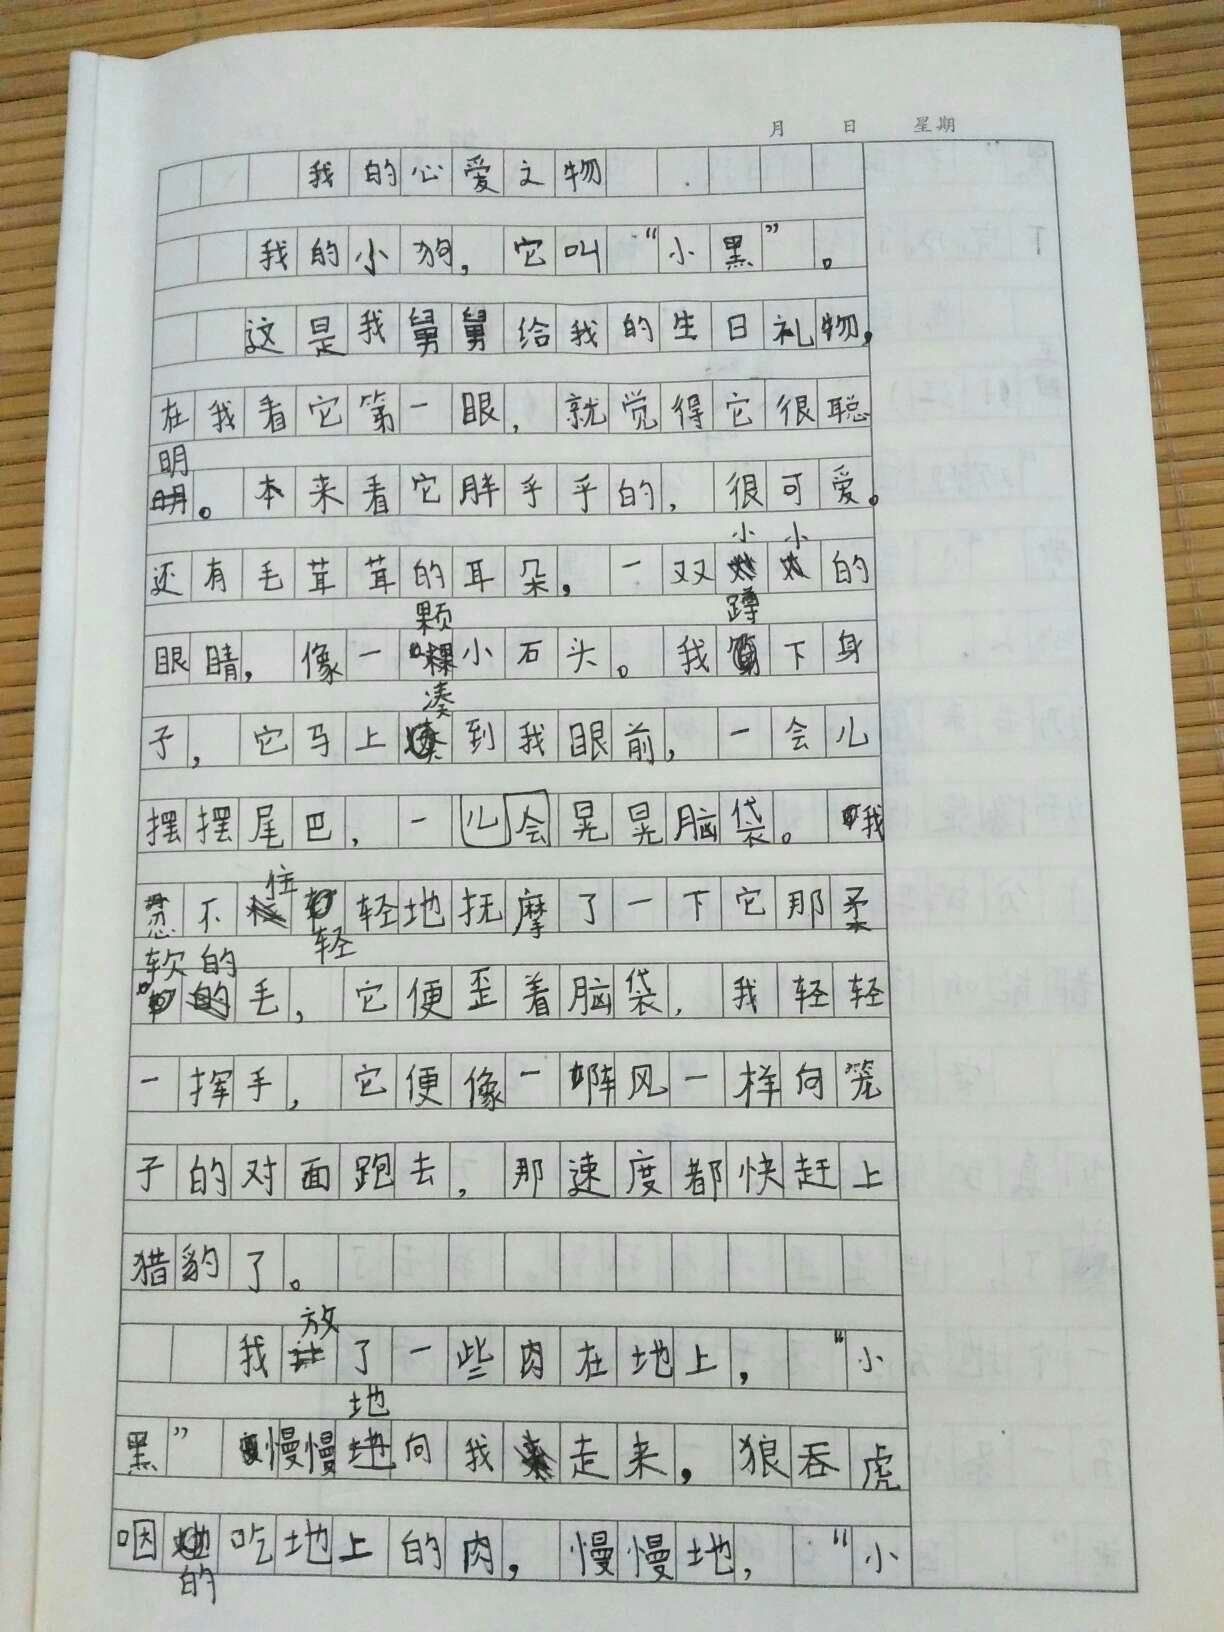 月 日 星期
我的心爱之物
我的小狗，它叫“小黑”。
这是我舅舅给我的生日礼物，
在我看它第一眼，就觉得它很聪
明。本来看它胖乎乎的，很可爱。
还有毛茸茸的耳朵，一双小小的
眼睛，像一颗小石头。我蹲下身
子，它马上凑到我眼前，一会儿
摆摆尾巴，一儿会晃晃脑袋。我
忍不住轻轻地抚摩了一下它那柔
软的毛，它便歪着脑袋，我轻轻
一挥手，它便像一阵风一样向笼
子的对面跑去，那速度都快赶上
猎豹了。
我放了一些肉在地上，“小
黑”慢慢地向我走来，狼吞虎
咽的吃地上的肉，慢慢地，“小